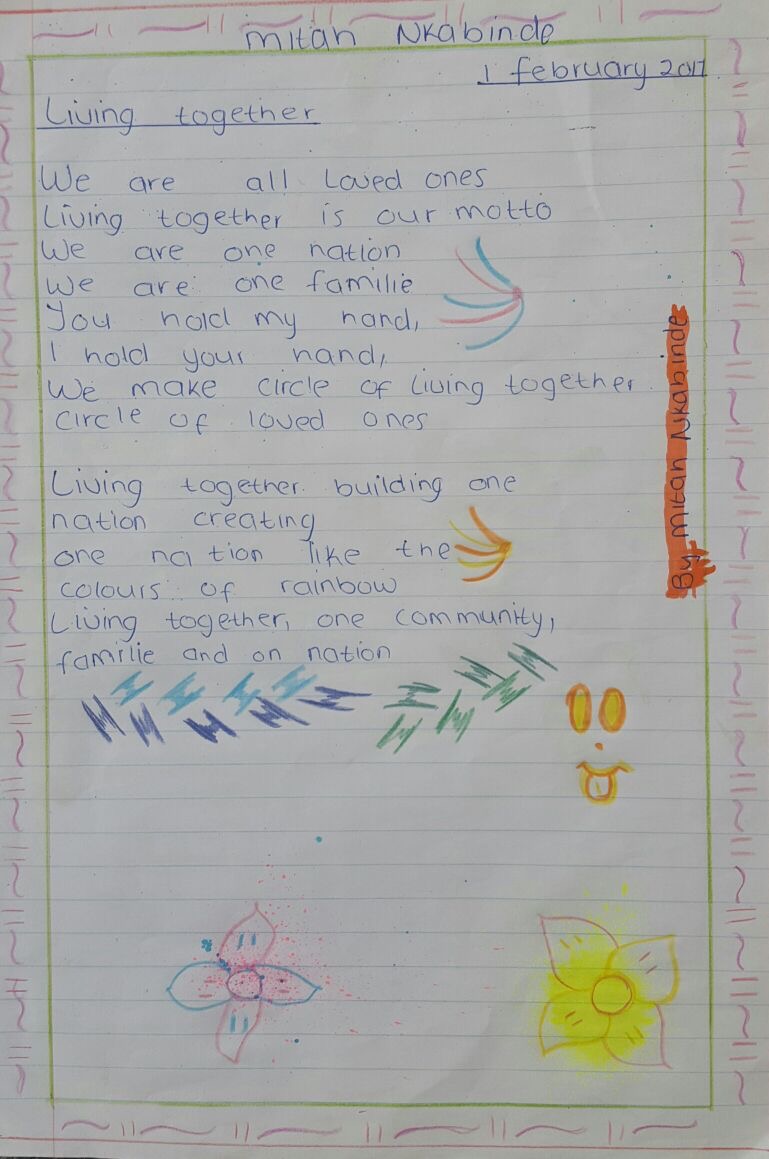 Mitah Nkabinde
1 february 2017
Living together
We are all Loved ones
Living together is our motto
We are one nation
We are one familie
You hold my hand,
I hold your hand,
We make circle of living together
circle of loved ones
Living together building one
nation creating
one nation like the
colours of rainbow
Living together, one community,
familie and on nation
By Mitah Nkabinde